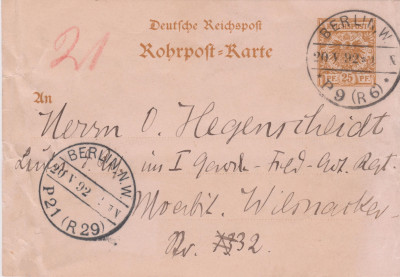 Deutsche Reichspost
Rohrpost-Karte
21
BERLIN W.
20 V 92
P 9 (R 6)
25 PF.
An
Herrn O. Hegenscheidt
im I Garde-Feld-Art. Rgt.
Moabit. Wilsnacker-
No. 32.
BERLIN N.W.
20 V 92
P 21 (R 29)